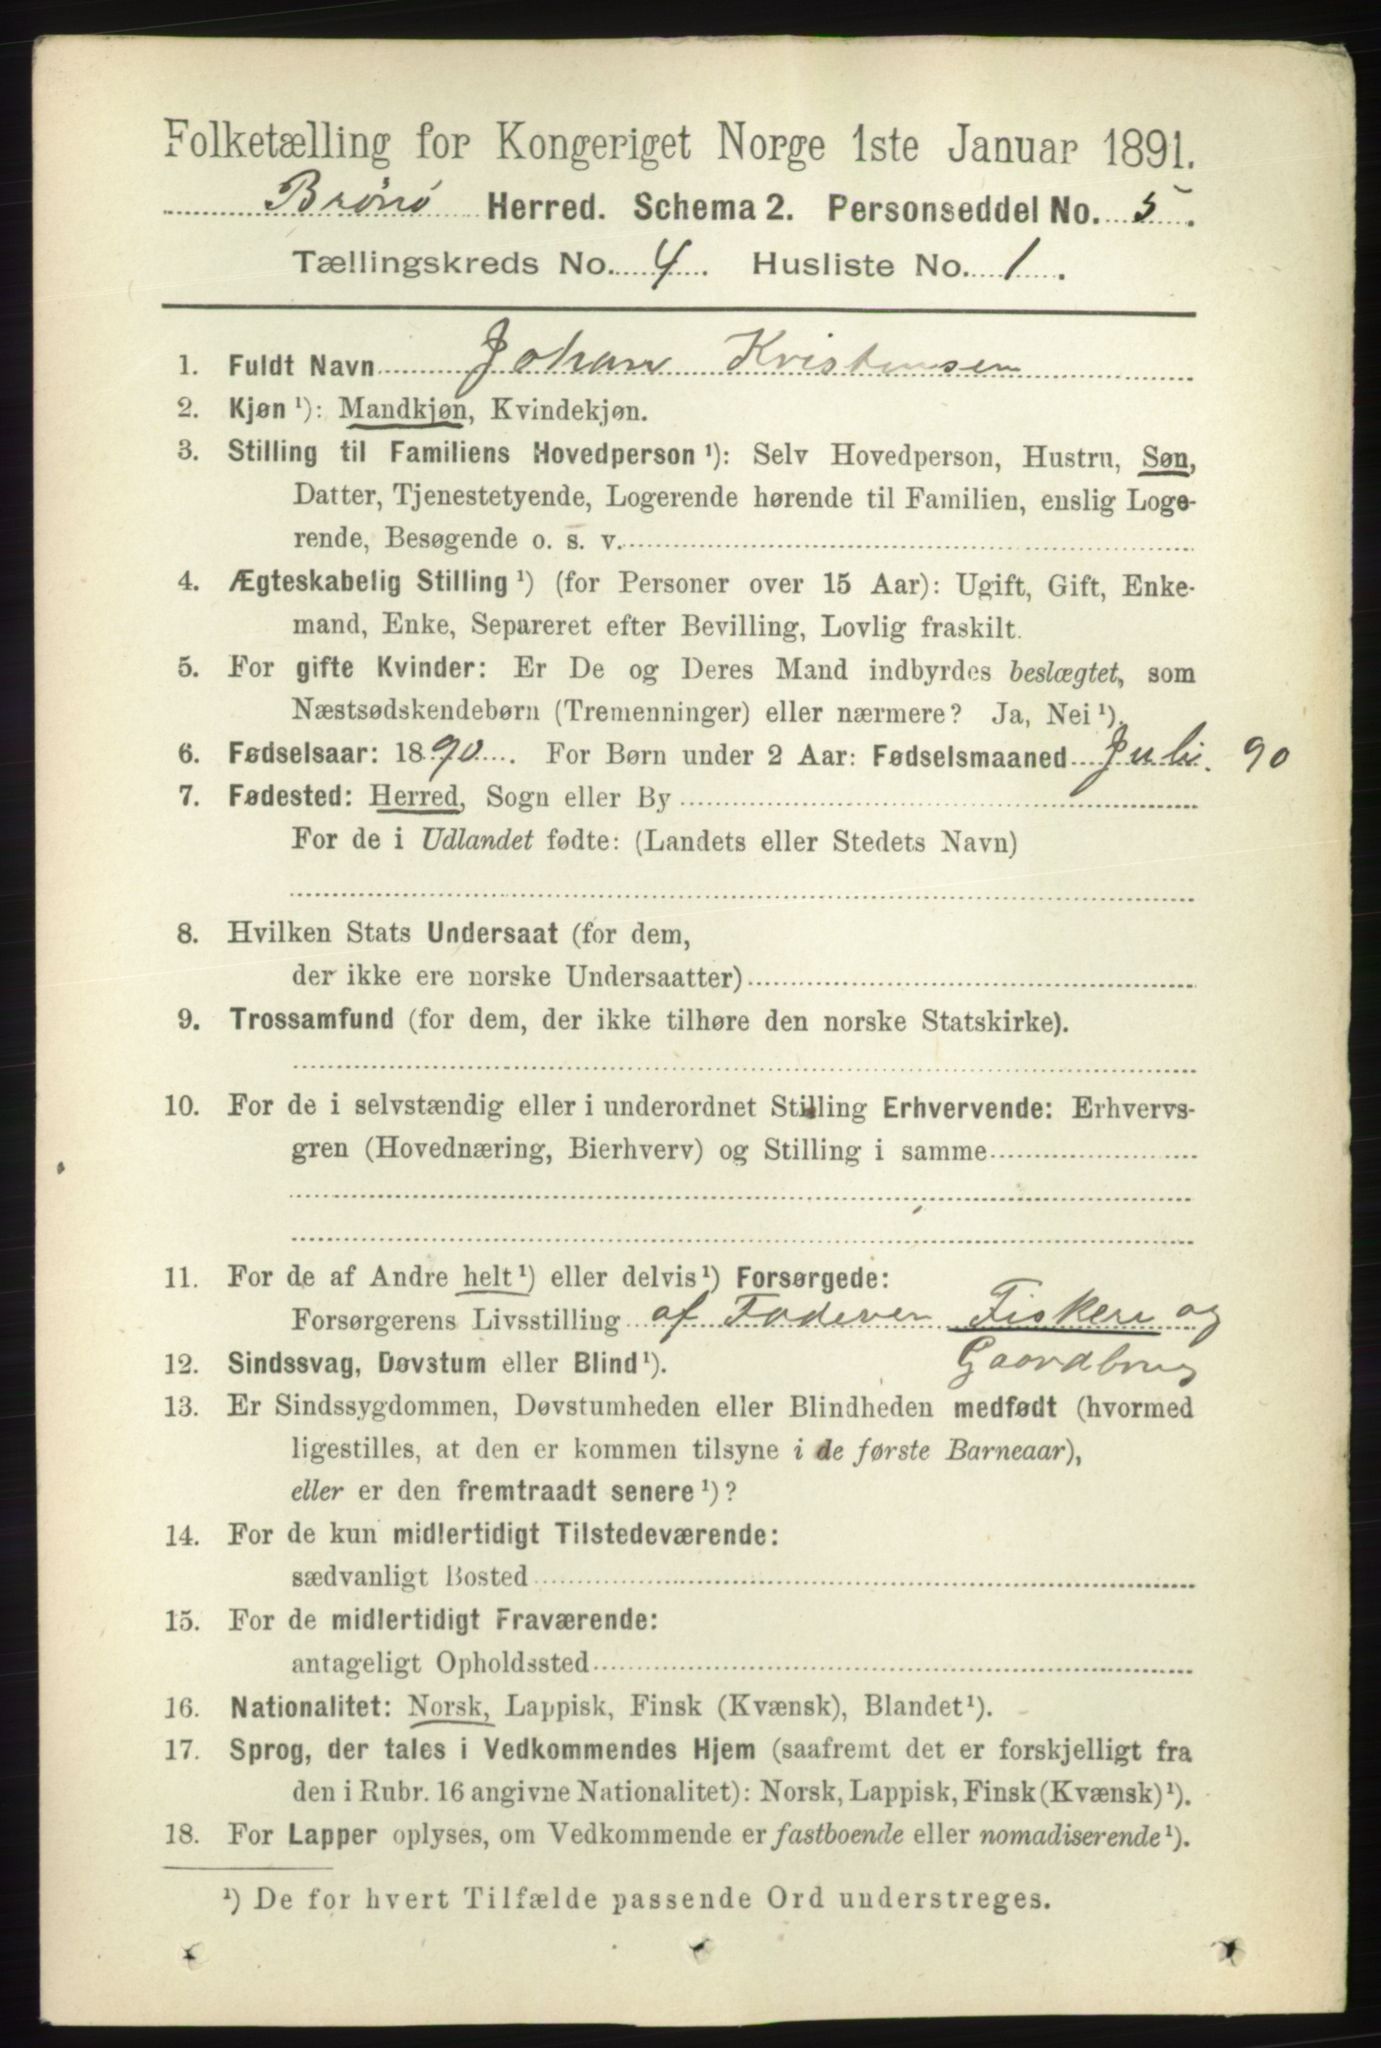 Folketælling for Kongeriget Norge 1ste Januar 1891.
Brönö Herred. Schema 2. Personseddel No. 5.
Tællingskreds No. 4. Husliste No. 1.
1. Fuldt Navn Johan Kristensen
2. Kjøn ¹): Mandkjøn, Kvindekjøn.
3. Stilling til Familiens Hovedperson ¹): Selv Hovedperson, Hustru, Søn,
Datter, Tjenestetyende, Logerende hørende til Familien, enslig Loge-
rende, Besøgende o. s. v.
4. Ægteskabelig Stilling ¹) (for Personer over 15 Aar): Ugift, Gift, Enke-
mand, Enke, Separeret efter Bevilling, Lovlig fraskilt.
5. For gifte Kvinder: Er De og Deres Mand indbyrdes beslægtet, som
Næstsødskendebørn (Tremenninger) eller nærmere? Ja, Nei ¹).
6. Fødselsaar: 1890. For Børn under 2 Aar: Fødselsmaaned Juli. 90
7. Fødested: Herred, Sogn eller By
For de i Udlandet fødte: (Landets eller Stedets Navn)
8. Hvilken Stats Undersaat (for dem,
der ikke ere norske Undersaatter)
9. Trossamfund (for dem, der ikke tilhøre den norske Statskirke).
10. For de i selvstændig eller i underordnet Stilling Erhvervende: Erhvervs-
gren (Hovednæring, Bierhverv) og Stilling i samme
11. For de af Andre helt ¹) eller delvis ¹) Forsørgede:
Forsørgerens Livsstilling af Faderen Fiskere og
Gaardbrug
12. Sindssvag, Døvstum eller Blind ¹).
13. Er Sindssygdommen, Døvstumheden eller Blindheden medfødt (hvormed
ligestilles, at den er kommen tilsyne i de første Barneaar),
eller er den fremtraadt senere ¹)?
14. For de kun midlertidigt Tilstedeværende:
sædvanligt Bosted
15. For de midlertidigt Fraværende:
antageligt Opholdssted
16. Nationalitet: Norsk, Lappisk, Finsk (Kvænsk), Blandet ¹).
17. Sprog, der tales i Vedkommendes Hjem (saafremt det er forskjelligt fra
den i Rubr. 16 angivne Nationalitet): Norsk, Lappisk, Finsk (Kvænsk) ¹).
18. For Lapper oplyses, om Vedkommende er fastboende eller nomadiserende ¹).
¹) De for hvert Tilfælde passende Ord understreges.